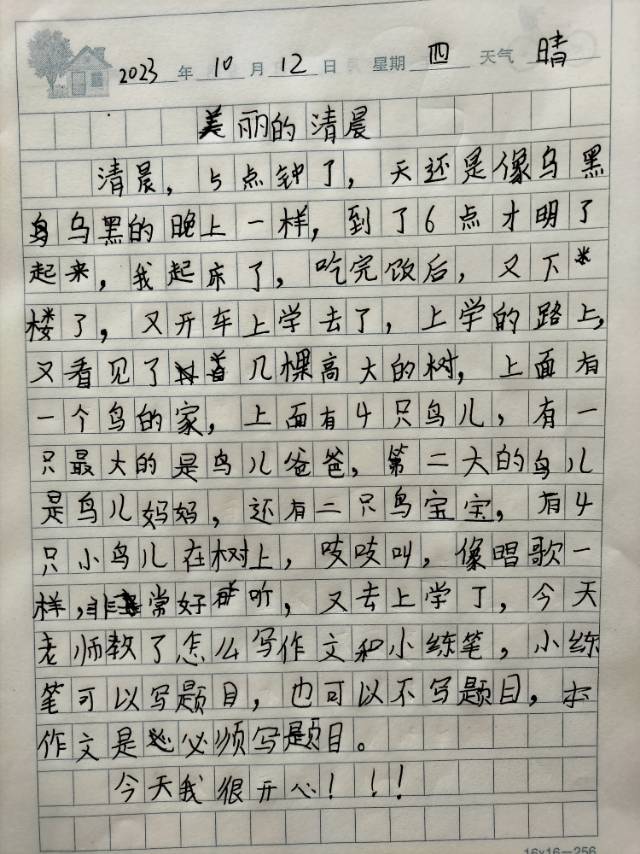 2023 年 10 月 12 日 星期 四 天气 晴
美丽的清晨
清晨，5点钟了，天还是像乌黑
乌黑的晚上一样，到了6点才明了
起来，我起床了，吃完饭后，又下
楼了，又开车上学去了，上学的路上，
又看见了几棵高大的树，上面有
一个鸟的家，上面有4只鸟儿，有一
只最大的是鸟儿爸爸，第二大的鸟儿
是鸟儿妈妈，还有二只鸟宝宝，有4
只小鸟儿在树上，吱吱叫，像唱歌一
样，非常好听，又去上学了，今天
老师教了怎么写作文和小练笔，小练
笔可以写题目，也可以不写题目，
作文是必须写题目。
今天我很开心！！！
16×16=256